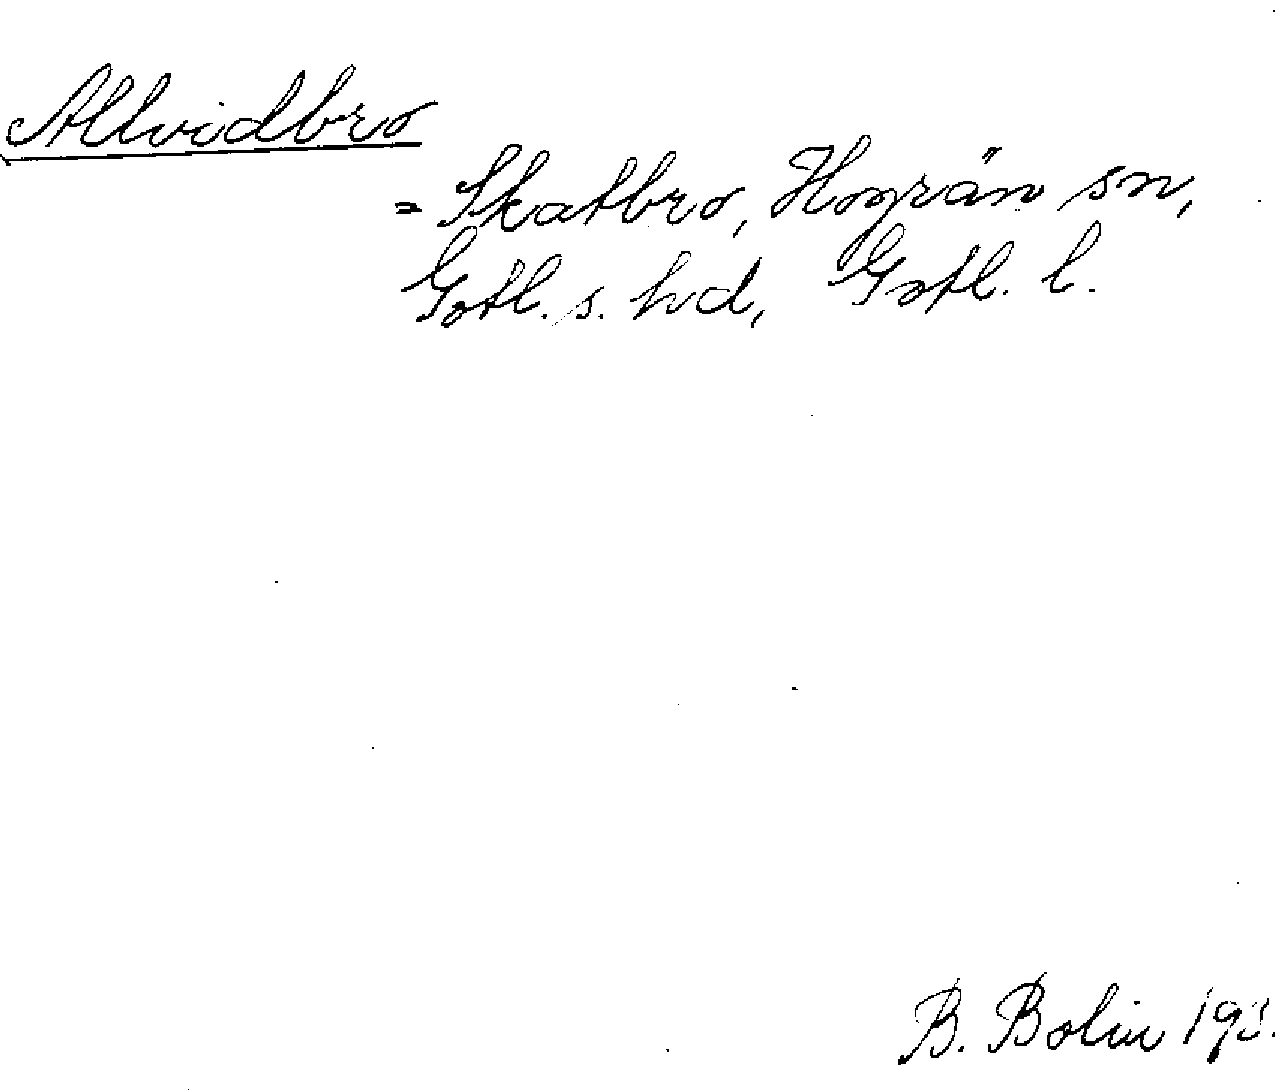 Allvidbro
= Skatbro, Hogrän sn,
Gotl. s. hd, Gotl. l.
B. Bolin 193